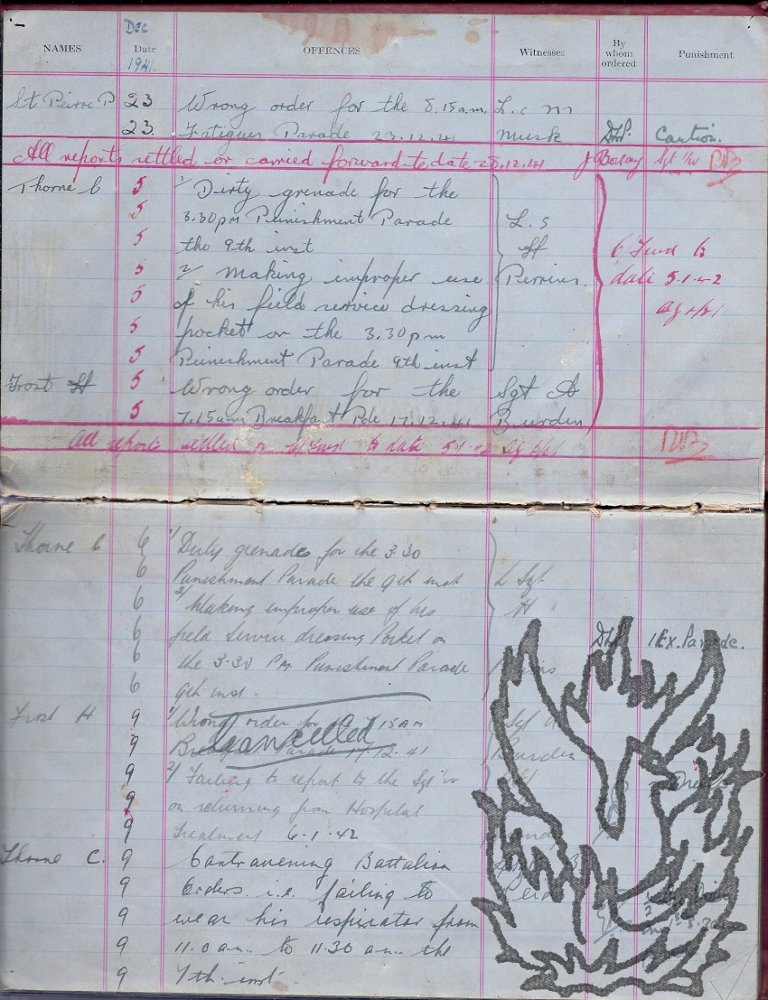 NAMES Dec Date 1941. OFFENCES Witnesses By whom ordered Punishment
St Pierre P 23 Wrong order for the 8.15am. L. c m
23 Fatigues Parade 23.12.41 Musk Caution.
All reports settled or carried forward to date 28.12.41 Sgt
Thorne C 5 1/ Dirty grenade for the
5 3.30pm Punishment Parade L. S
5 the 9th inst H
5 2/ Making improper use Perrins.
5 of his field service dressing date 5.1.42
5 pocket on the 3.30pm
5 Punishment Parade 9th inst
Frost H 5 Wrong order for the Sgt
5 7.15am Breakfast Pde 17.12.41 Burden
All reports settled or to date
Thorne C 6 1/ Dirty grenades for the 3.30
6 Punishment Parade the 9th inst L Sgt.
6 2/ Making improper use of his H
6 field service dressing Pocket on 1 Ex. Parade.
6 the 3.30 P.M. Punishment Parade
6 9th inst.
Frost H 9 1/ Wrong order for 15 am
9 Parade 17.12.41 Burden
Cancelled
9 2/ Failing to report to the Sgt
9 on returning from Hospital
9 Treatment 6.1.42
Thorne C. 9 Contravening Battalion
9 Orders. i.e. failing to
9 wear his respirator from
9 11.0 am. to 11.30 am. the
9 7th. inst.